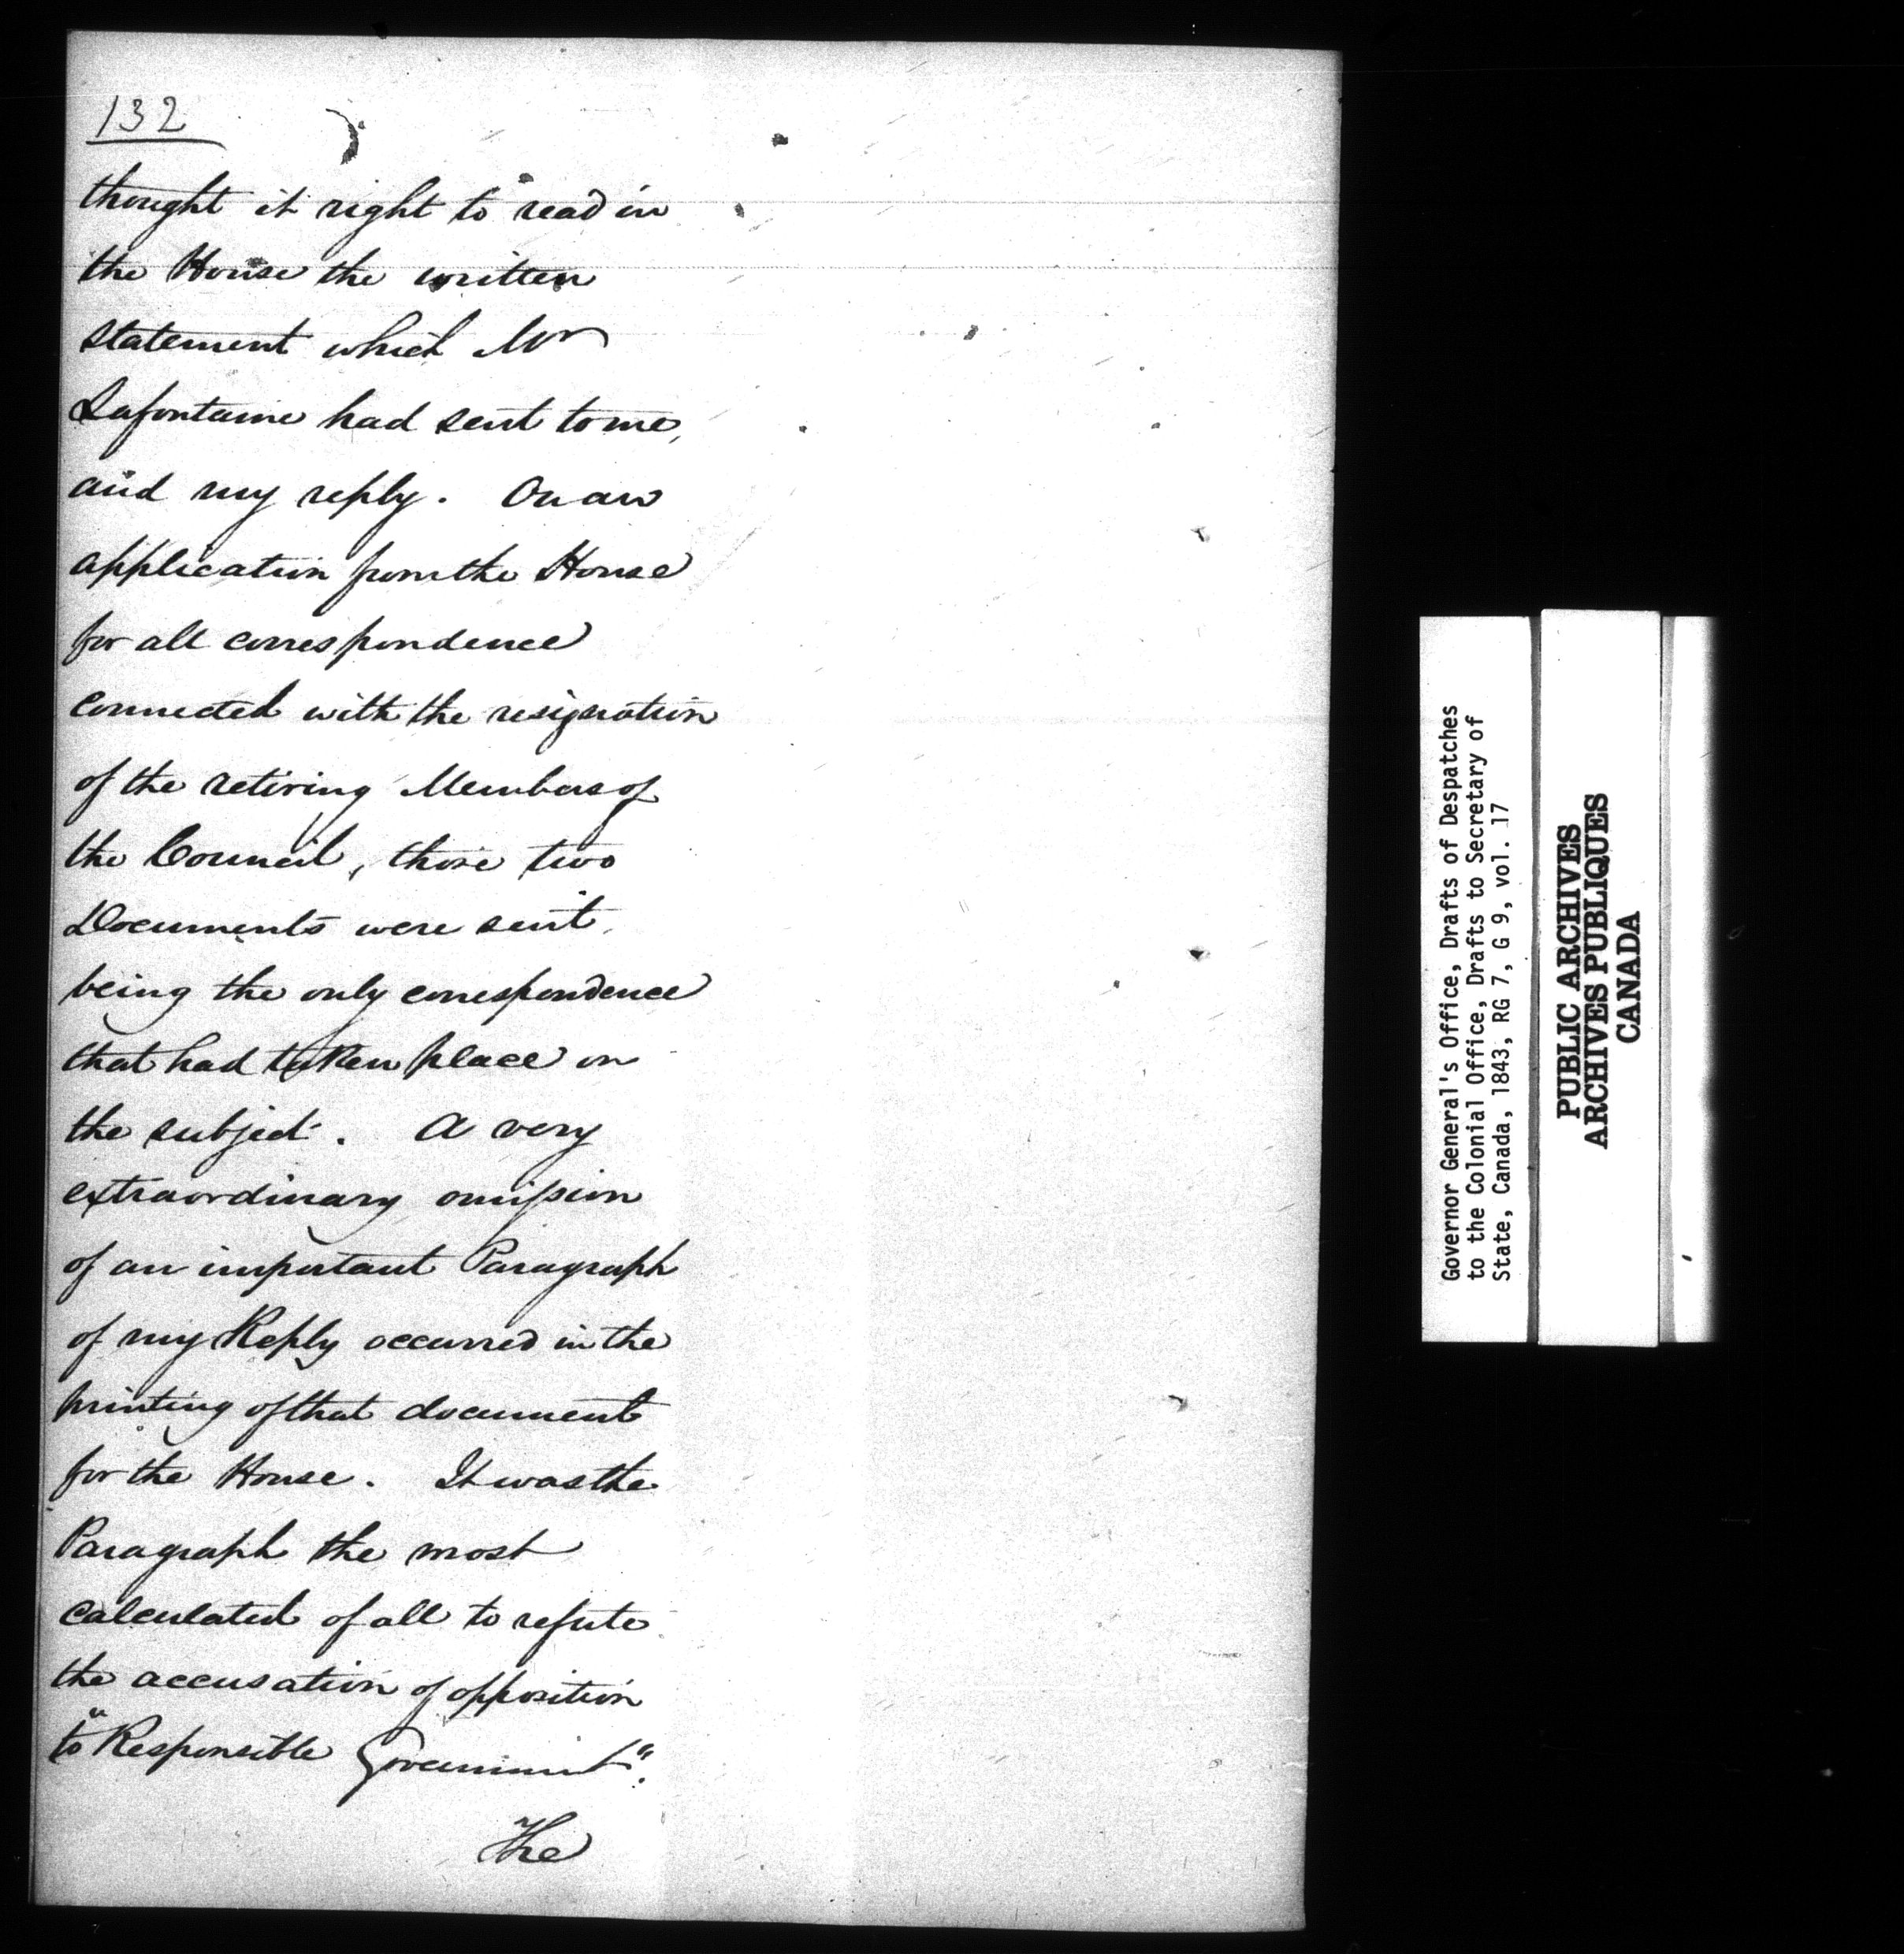 132
thought it right to read in
the House the written
statement which Mr
Lafontaine had sent to me,
and my reply. On an
application from the House
for all correspondence
connected with the resignation
of the retiring Members of
the Council, those two
Documents were sent,
being the only correspondence
that had taken place on
the subject. A very
extraordinary omission
of an important Paragraph
of my Reply occurred in the
printing of that document
for the House. It was the
Paragraph the most
calculated of all to refute
the accusation of opposition
to "Responsible Government".
The
Governor General's Office, Drafts of Despatches
to the Colonial Office, Drafts to Secretary of
State, Canada, 1843, RG 7, G 9, vol. 17
PUBLIC ARCHIVES
ARCHIVES PUBLIQUES
CANADA